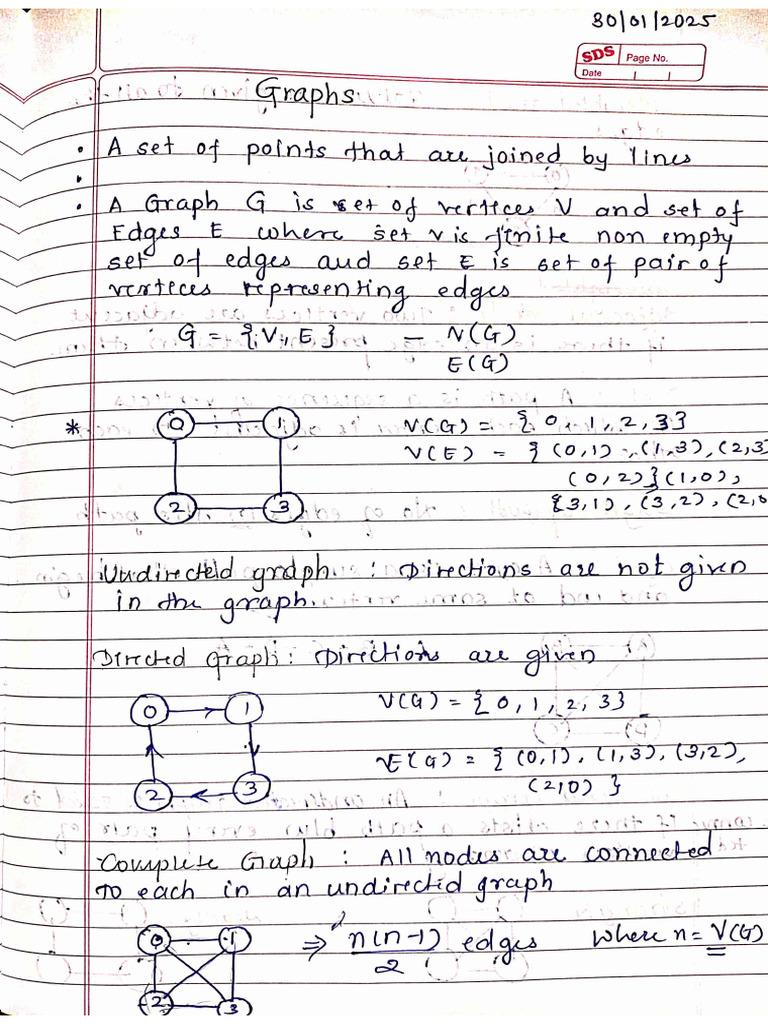 30/01/2025
SDS Page No.
Date
Graphs
• A set of points that are joined by lines
•
• A Graph G is set of vertices V and set of
Edges E where set v is finite non empty
set of edges and set E is set of pair of
vertices representing edges
G = {V, E} — N(G)
E(G)
* 0 1 V(G) = {0, 1, 2, 3}
V(E) = {(0,1), (1,3), (2,3
(0,2)}(1,0),
2 3 {3,1), (3,2), (2,0
Undirected graph : Directions are not given
in the graph.
Directed graph : Directions are given
0 1 V(G) = {0, 1, 2, 3}
E(G) = {(0,1), (1,3), (3,2),
2 3 (2,0)}
Complete Graph : All nodes are connected
to each in an undirected graph
0 1 ⇒ n(n-1)/2 edges where n = V(G)
2 3